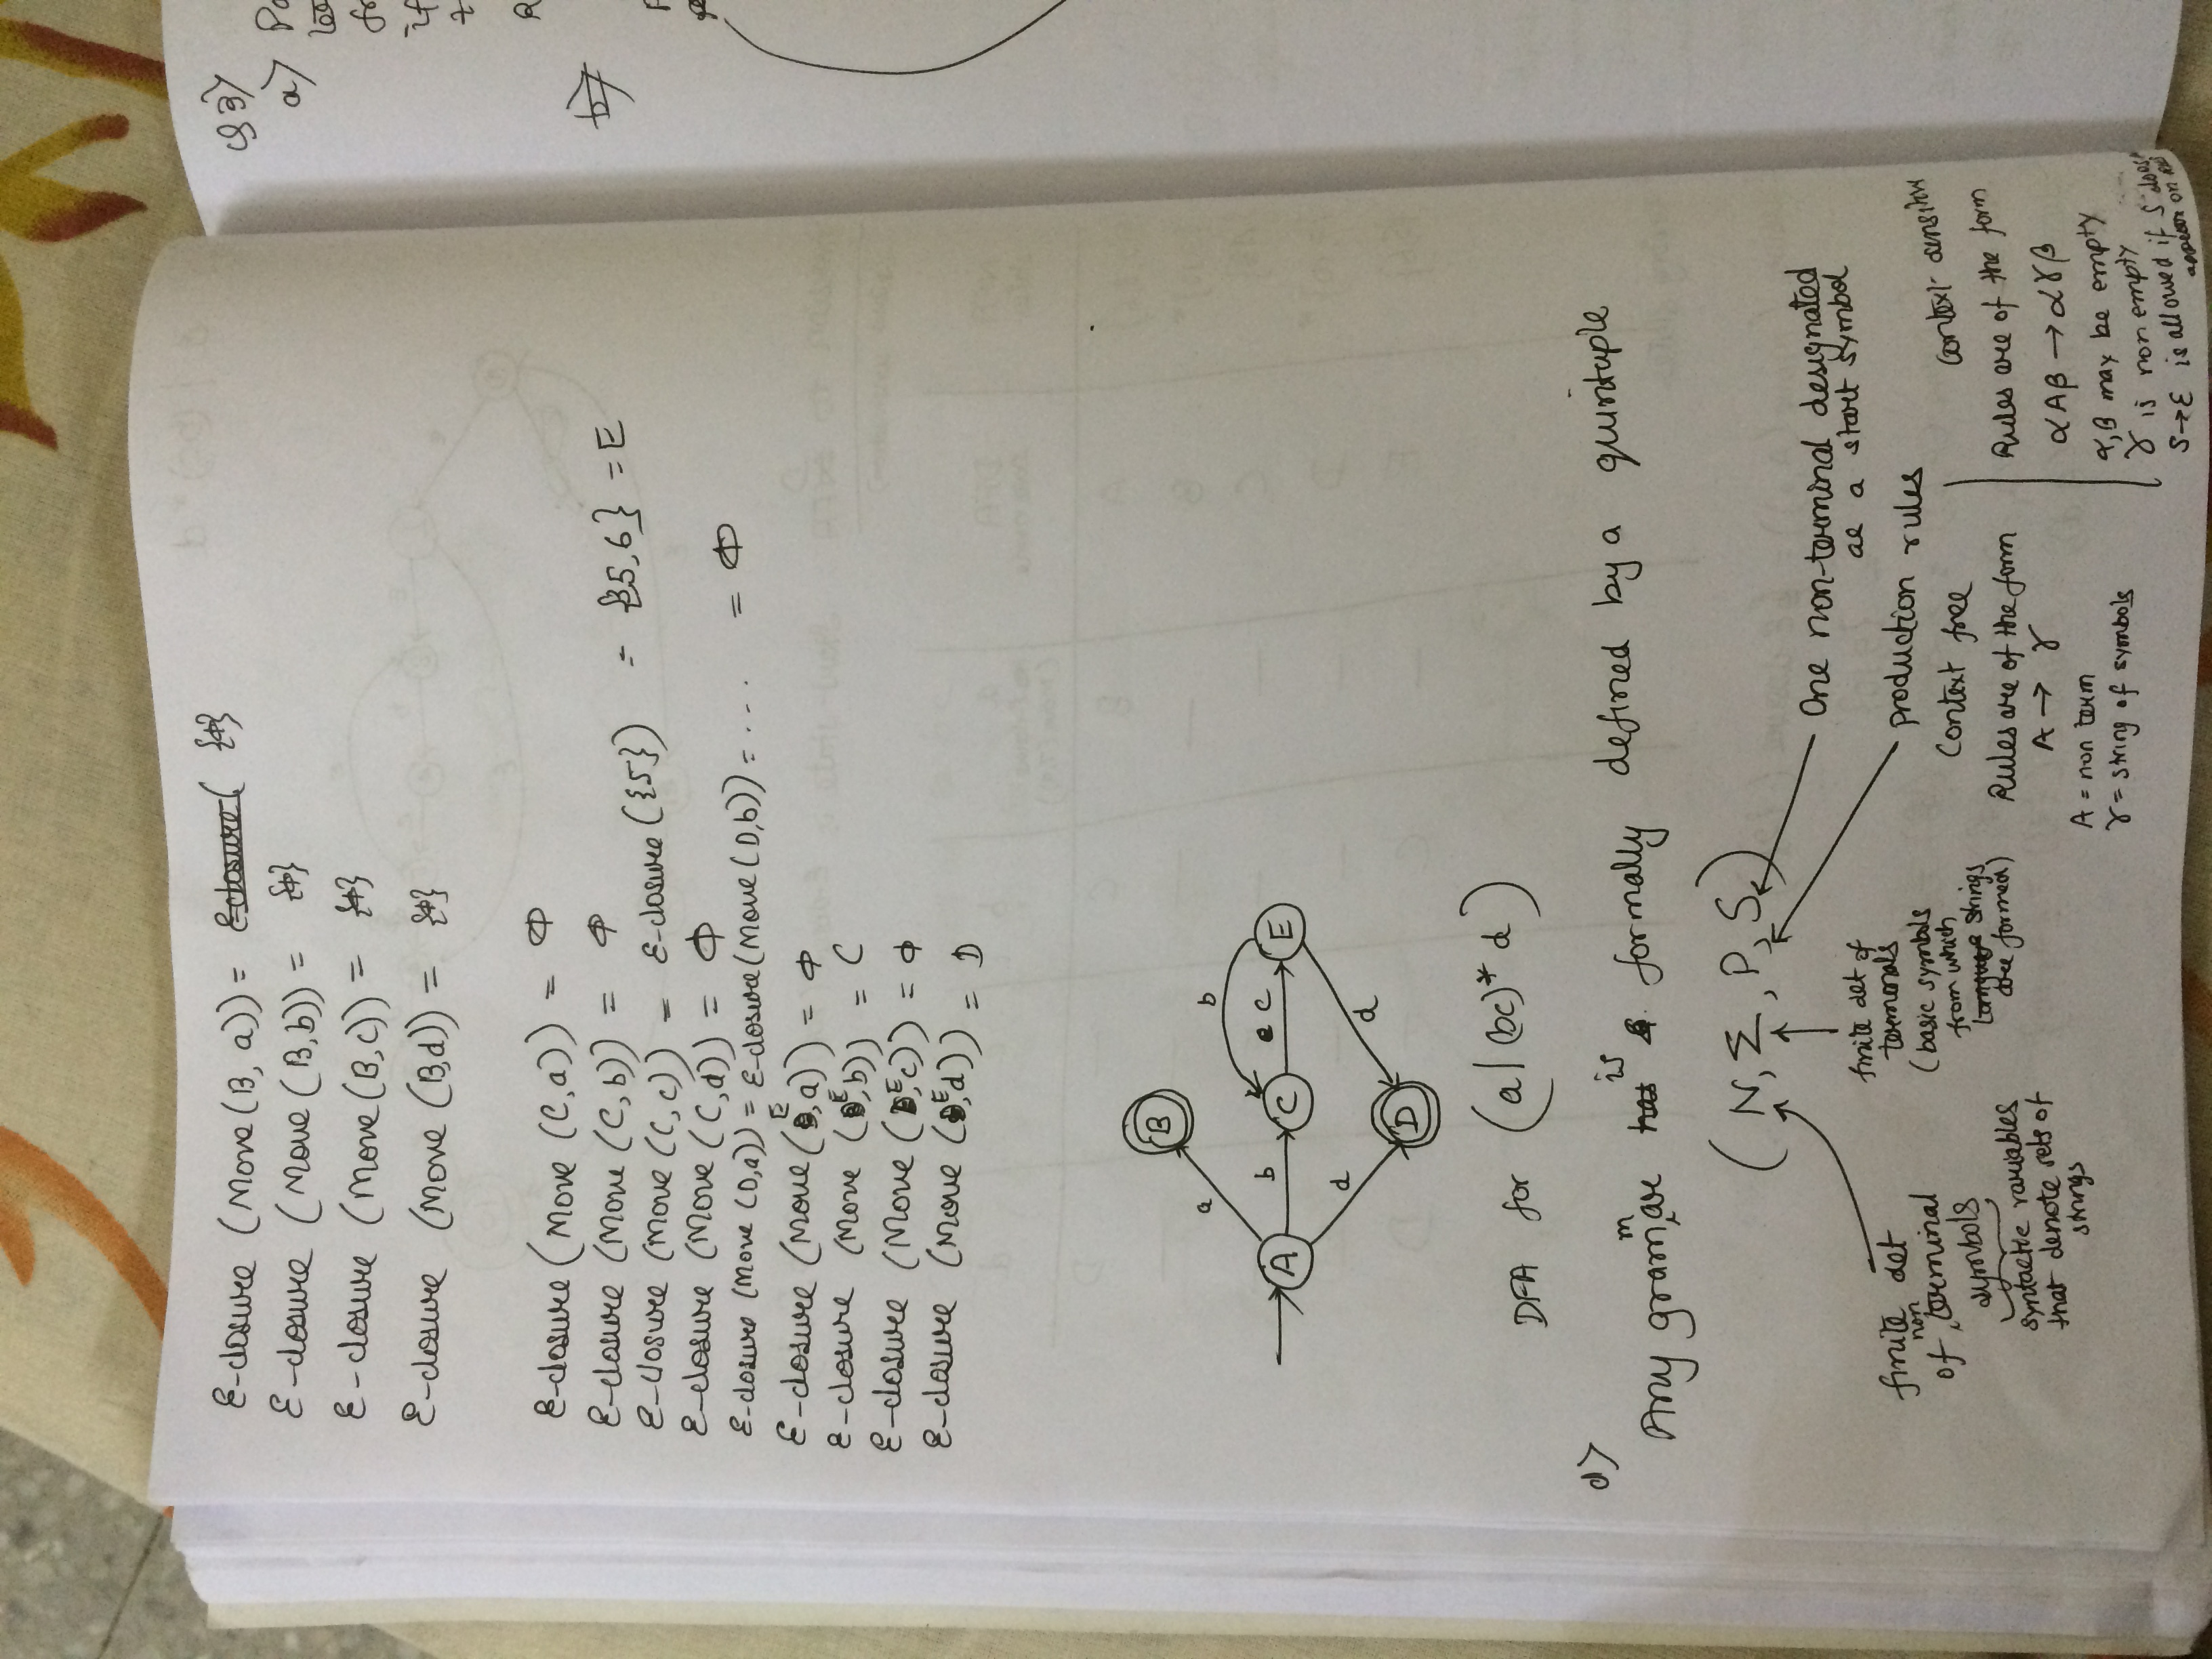 ε-closure (Move(B, a)) = ε-closure( {Φ}
ε-closure (Move (B,b)) = {Φ}
ε-closure (Move(B,c)) = {Φ}
ε-closure (Move (B,d)) = {Φ}
ε-closure (Move (C,a)) = Φ
ε-closure (Move (C,b)) = Φ
ε-closure (Move (C,c)) = ε-closure ({5}) = {5,6} = E
ε-closure (Move (C,d)) = Φ
ε-closure (Move (D,a)) = ε-closure (Move (D,b)) = .... = Φ
ε-closure (Move (E,a)) = Φ
ε-closure (Move (E,b)) = C
ε-closure (Move (E,c)) = Φ
ε-closure (Move (E,d)) = D
B
a
b
A
b
C
c
E
d
d
D
DFA for (a|(bc)* d)
d)
Any grammar has is formally defined by a quintuple
(N, Σ, P, S)
One non-terminal designated
as a start symbol
finite set
of non terminal
symbols
syntactic variables
that denote sets of
strings
finite set of
terminals
(basic symbols
from which
Language strings
are formed)
production rules
Context free
Rules are of the form
A → γ
A = non term
γ = string of symbols
Context-sensitive
Rules are of the form
αAβ → αγβ
α,β may be empty
γ is non empty
S→ε is allowed if S does
appear on RHS
Q3)
a)
if
b)